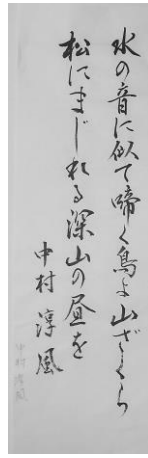 水の音に似て啼く鳥よ山ざくら
松にまじれる深山の昼を
中村淳風
中村淳風